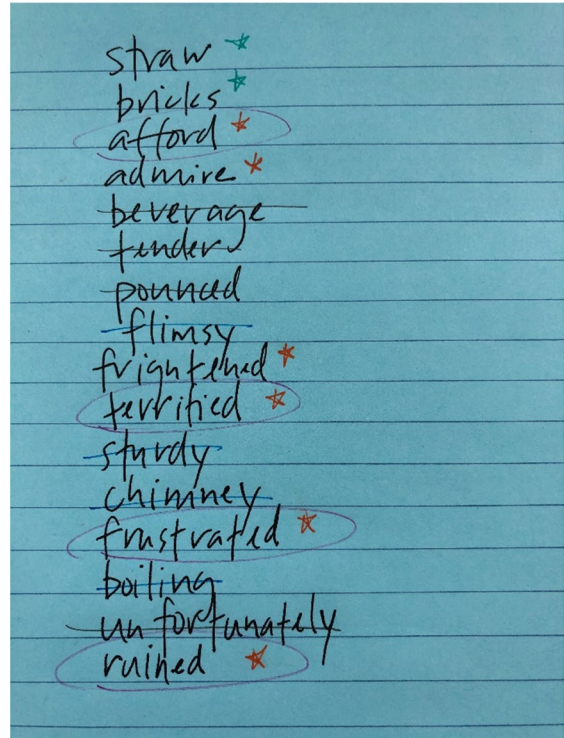 straw
bricks
afford
admire
beverage
tender
pounced
flimsy
frightened
terrified
sturdy
chimney
frustrated
boiling
unfortunately
ruined